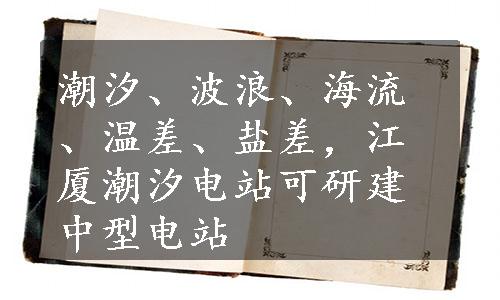 潮汐、波浪、海流
、温差、盐差，江
厦潮汐电站可研建
中型电站